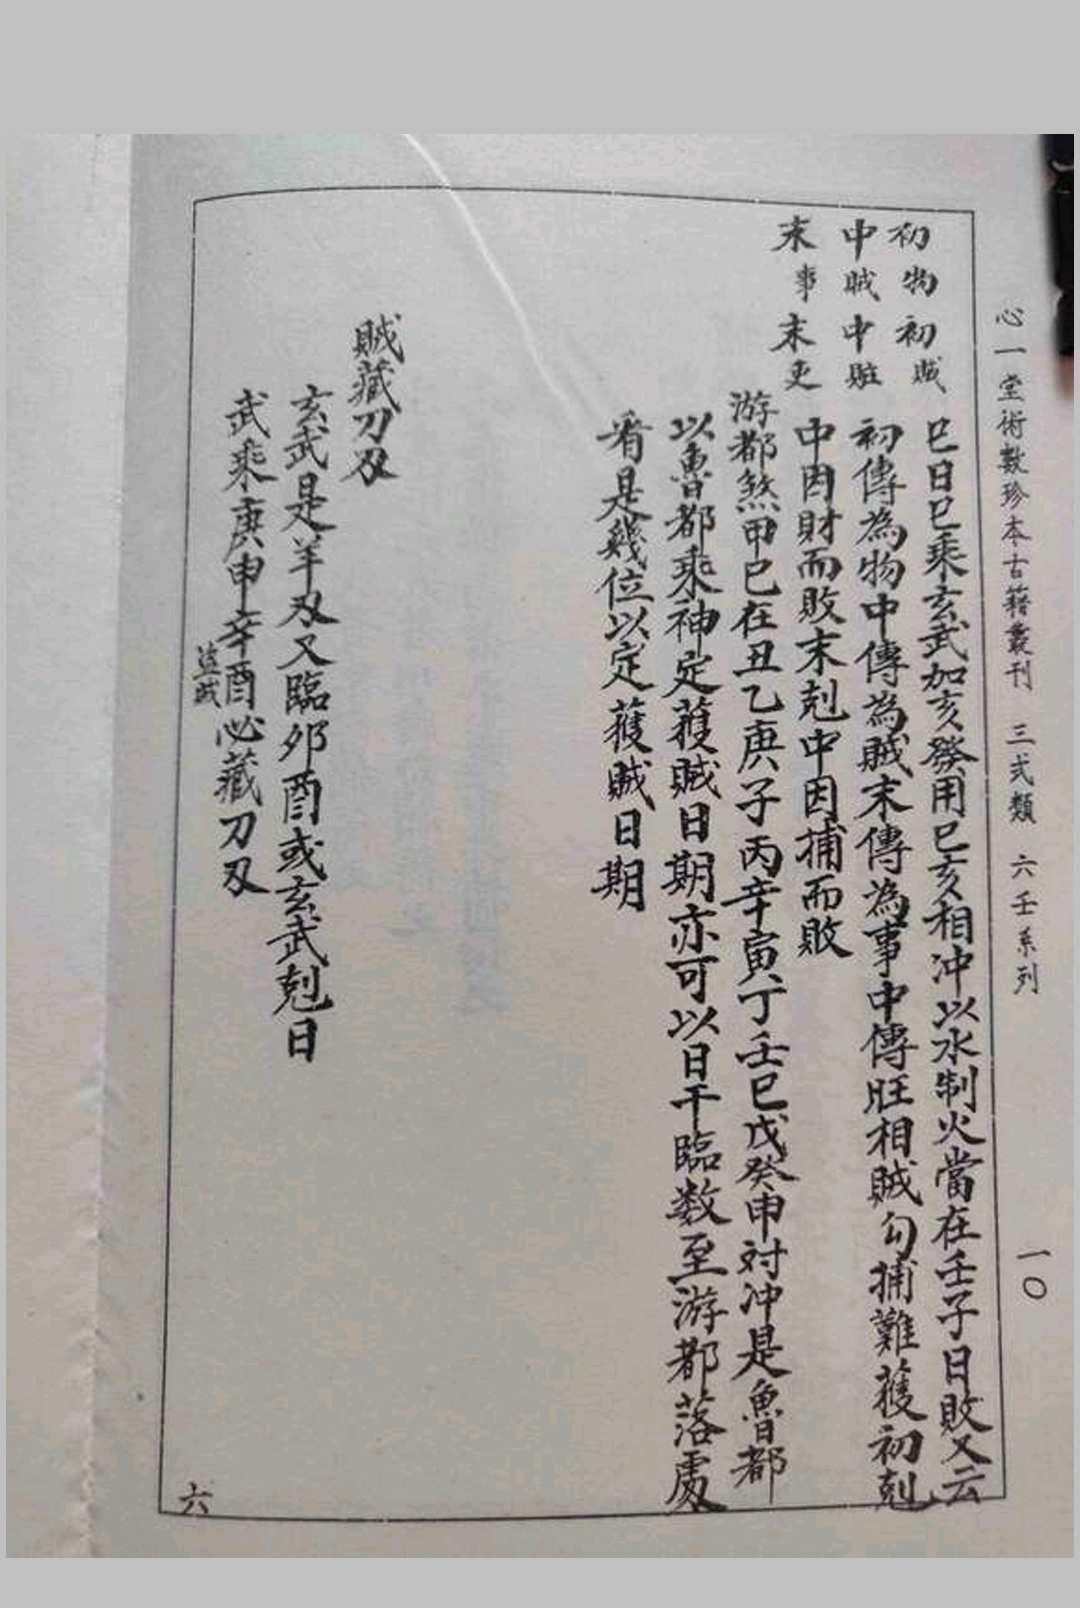 心一堂術數珍本古籍叢刊 三式類 六壬系列
一〇
初物初賊
中賊中賍
末事末吏
巳日巳乘玄武加亥發用巳亥相冲以水制火當在壬子日敗又云
初傳為物中傳為賊末傳為事中傳旺相賊勾捕難獲初剋
中因財而敗末剋中因捕而敗
游都煞甲己在丑乙庚子丙辛寅丁壬巳戊癸申対冲是魯都
以魯都乘神定獲賊日期亦可以日干臨数至游都落處
看是幾位以定獲賊日期
賊藏刀刄
玄武是羊刄又臨夘酉或玄武剋日
武乘庚申辛酉必藏刀刄
盜賊
六